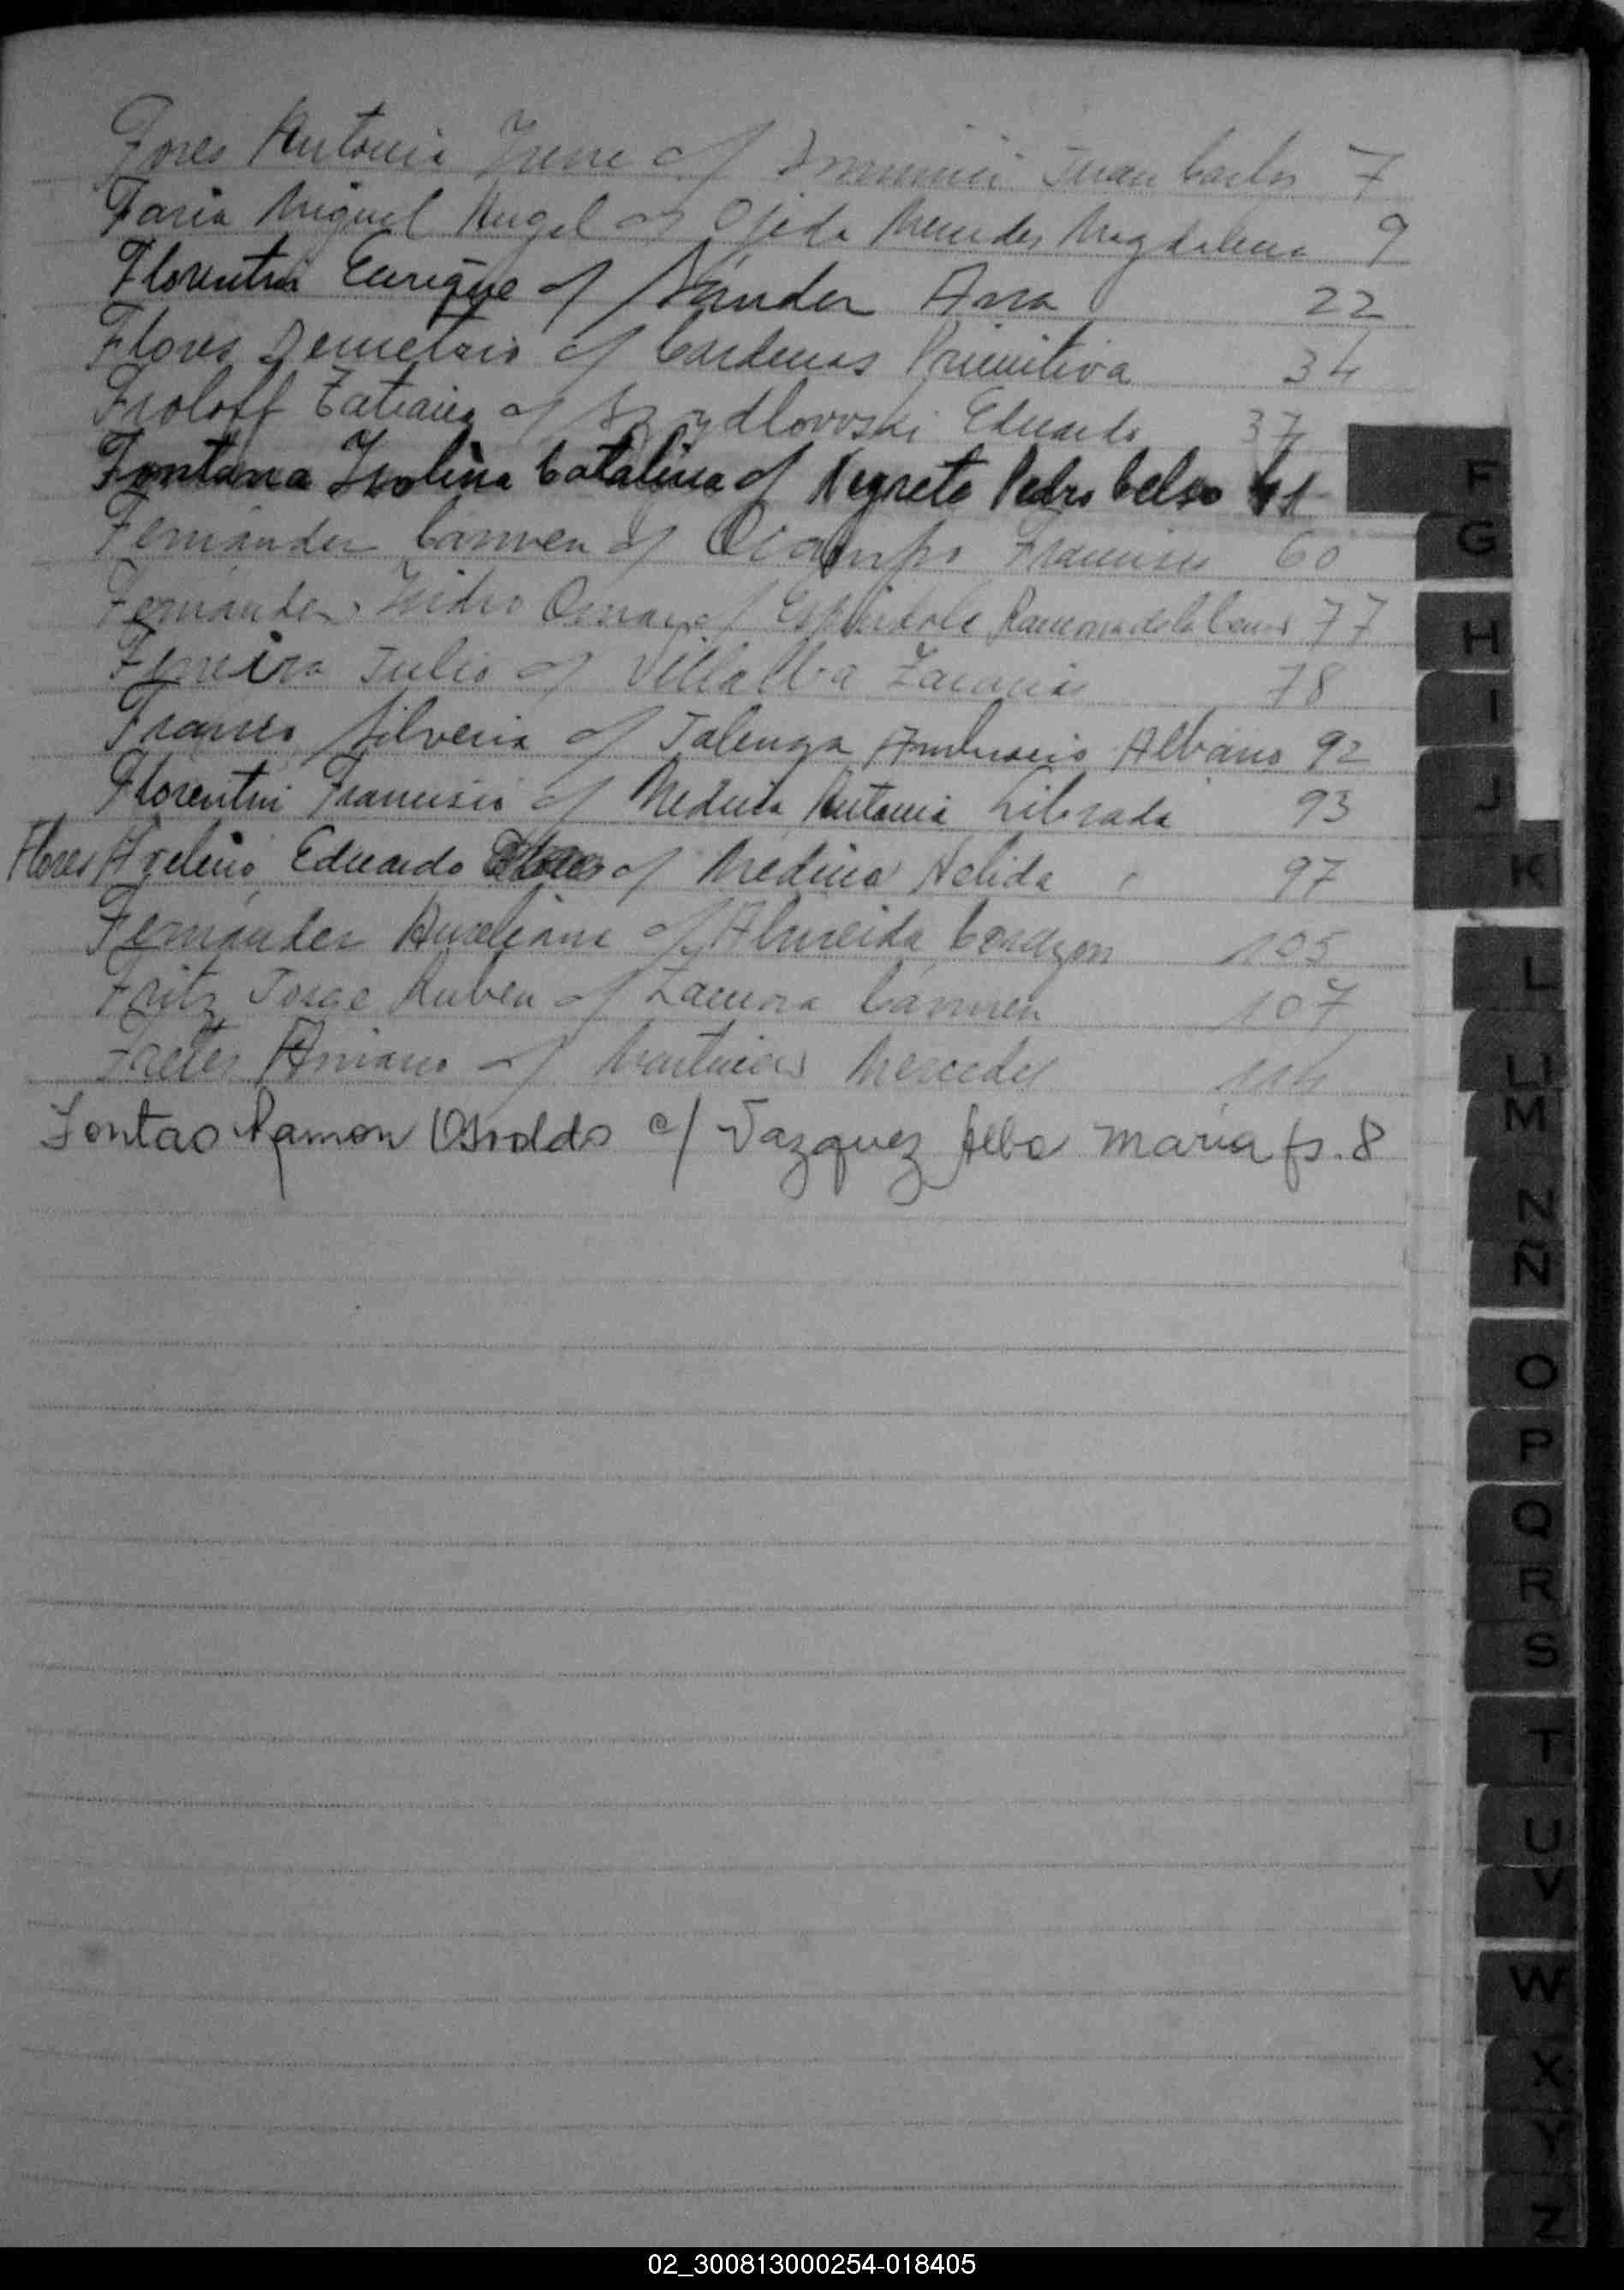 Fores Antonia Irene c/ Juan Carlos 7
Faria Miguel Angel c/ Ojeda Mercedes Magdalena 9
Florentin Enrique c/ Ana 22
Flores Demetrio c/ Cardenas Primitiva 34
Froloff Tatiana c/ Szydlovoski Eduardo 37
Fontana Isolina Catalina c/ Negrete Pedro Celso
Fernandez Carmen c/ Ocampo Francisco 60
Fernandez Isidro Omar c/ Espindola Ramona de la Cruz 77
Ferreira Julio c/ Villalba Zacarias 78
Franco Silveria c/ Talenga Ambrosio Albano 92
Florentin Francisco c/ Medina Antonia Librada 93
Flores Avelino Eduardo c/ Medina Nelida 97
Fernandez Aureliana c/ Almeida Corazon 105
Fritz Jorge Ruben c/ Zamora Carmen 107
Amaro c/ Martinez Mercedes 114
Fontao Ramon Osvaldo c/ Vazquez Alba Maria fs. 8
F
G
H
I
J
K
L
Ll
M
N
Ñ
O
P
Q
R
S
T
U
V
W
X
Y
Z
02_300813000254-018405